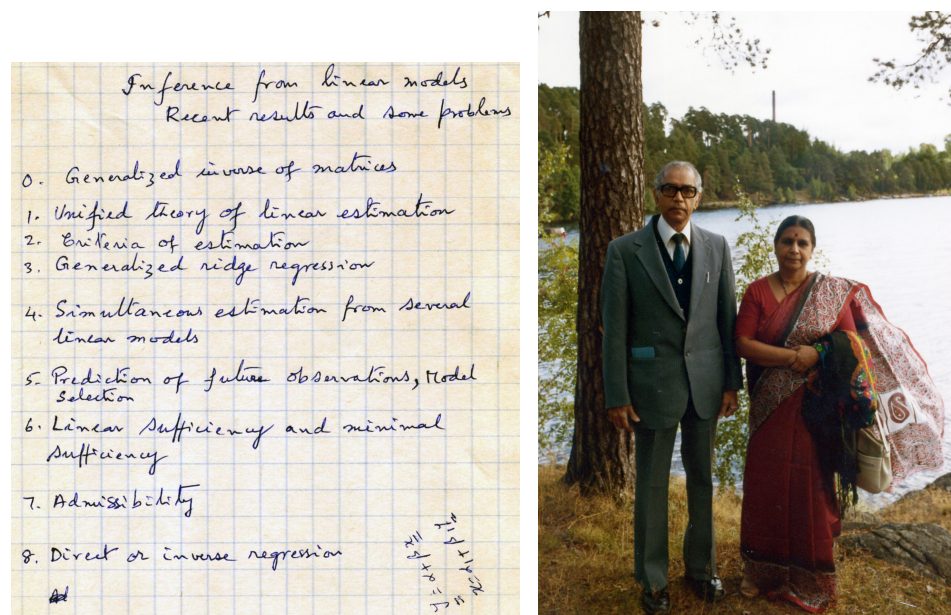 Inference from linear models
Recent results and some problems
0. Generalized inverse of matrices
1. Unified theory of linear estimation
2. Criteria of estimation
3. Generalized ridge regression
4. Simultaneous estimation from several
linear models
5. Prediction of future observations, Model
Selection
6. Linear Sufficiency and minimal
Sufficiency
7. Admissibility
8. Direct or inverse regression